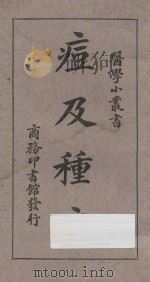 醫學小叢書
痘及種
商務印書館發行
www.mtoou.info